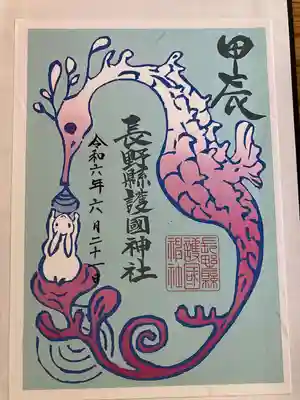 甲辰
長野縣護國神社
令和六年六月二十一日
長野縣
護国
神社